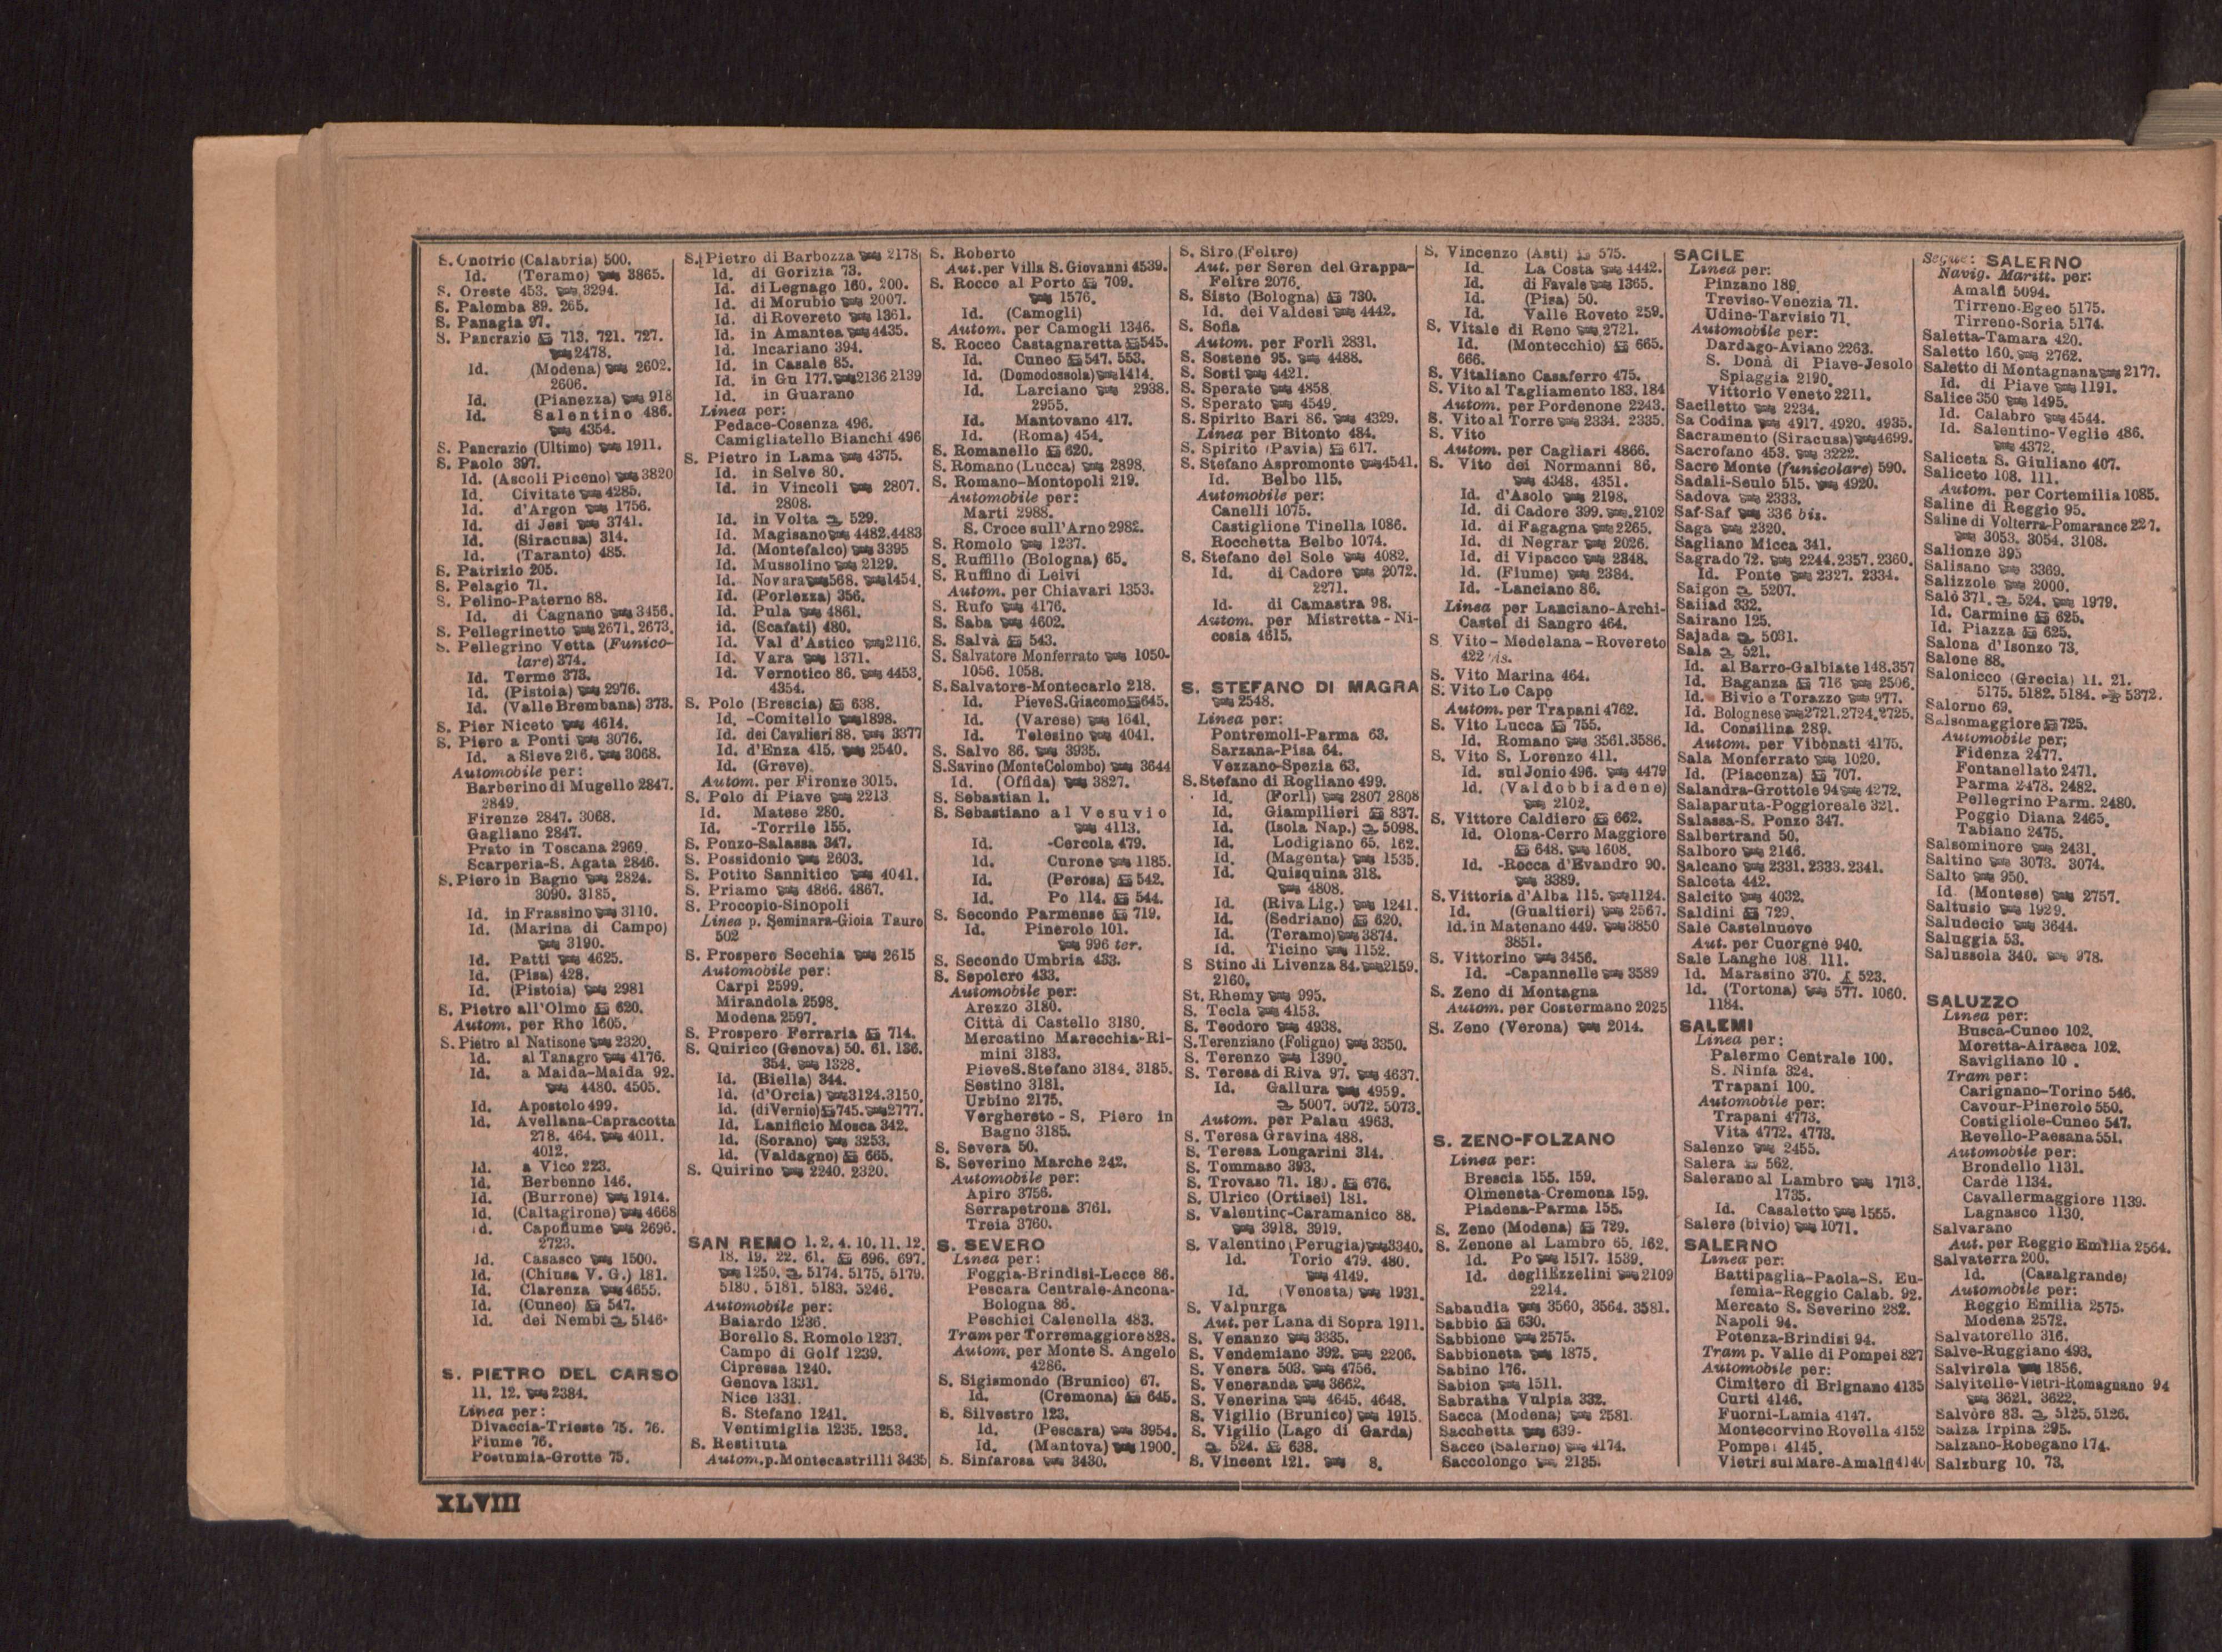 S. Onofrio (Calabria) 500.
Id. (Teramo) 3865.
S. Oreste 453. 3294.
S. Palomba 89. 265.
S. Panagia 97.
S. Pancrazio 713. 721. 727.
2478.
Id. (Modena) 2602.
2606.
Id. (Pianezza) 918
Id. Salentino 486.
4354.
S. Pancrazio (Ultimo) 1911.
S. Paolo 397.
Id. (Ascoli Piceno) 3820
Id. Civitate 4285.
Id. d'Argon 1756.
Id. di Jesi 3741.
Id. (Siracusa) 314.
Id. (Taranto) 485.
S. Patrizio 205.
S. Pelagio 71.
S. Pelino-Paterno 88.
Id. di Cagnano 3456.
S. Pellegrinetto 2671. 2673.
S. Pellegrino Vetta (Funico-
lare) 374.
Id. Terme 373.
Id. (Pistoia) 2976.
Id. (Valle Brembana) 373.
S. Pier Niceto 4614.
S. Piero a Ponti 3076.
Id. a Sieve 216. 3068.
Automobile per:
Barberino di Mugello 2847.
2849.
Firenze 2847. 3068.
Gagliano 2847.
Prato in Toscana 2969.
Scarperia-S. Agata 2846.
S. Piero in Bagno 2824.
3090. 3185.
Id. in Frassino 3110.
Id. (Marina di Campo)
3190.
Id. Patti 4625.
Id. (Pisa) 428.
Id. (Pistoia) 2981
S. Pietro all'Olmo 620.
Autom. per Rho 1605.
S. Pietro al Natisone 2320.
Id. al Tanagro 4176.
Id. a Maida-Maida 92.
4480. 4505.
Id. Apostolo 499.
Id. Avellana-Capracotta
278. 464. 4011.
4012.
Id. a Vico 223.
Id. Berbenno 146.
Id. (Burrone) 1914.
Id. (Caltagirone) 4668
Id. Capofiume 2696.
2723.
Id. Casasco 1500.
Id. (Chiusa V. G.) 181.
Id. Clarenza 4655.
Id. (Cuneo) 547.
Id. dei Nembi 5146.
S. PIETRO DEL CARSO
11. 12. 2384.
Linea per:
Divaccia-Trieste 75. 76.
Fiume 76.
Postumia-Grotte 75.
S. Pietro di Barbozza 2178
Id. di Gorizia 73.
Id. di Legnago 160. 200.
Id. di Morubio 2007.
Id. di Rovereto 1361.
Id. in Amantea 4435.
Id. Incariano 394.
Id. in Casale 85.
Id. in Gu 177. 2136 2139
Id. in Guarano
Linea per:
Pedace-Cosenza 496.
Camigliatello Bianchi 496
S. Pietro in Lama 4375.
Id. in Selve 80.
Id. in Vincoli 2807.
2808.
Id. in Volta 529.
Id. Magisano 4482.4483
Id. (Montefalco) 3395
Id. Mussolino 2129.
Id. Novara 568. 1454.
Id. (Porlezza) 356.
Id. Pula 4861.
id. (Scafati) 480.
Id. Val d'Astico 2116.
Id. Vara 1371.
Id. Vernotico 86. 4453.
4354.
S. Polo (Brescia) 638.
Id. -Comitello 1898.
Id. dei Cavalieri 88. 3377
Id. d'Enza 415. 2540.
Id. (Greve).
Autom. per Firenze 3015.
S. Polo di Piave 2213
Id. Matese 280.
Id. -Torrile 155.
S. Ponzo-Salassa 347.
S. Possidonio 2603.
S. Potito Sannitico 4041.
S. Priamo 4866. 4867.
S. Procopio-Sinopoli
Linea p. Seminara-Gioia Tauro
502
S. Prospero Secchia 2615
Automobile per:
Carpi 2599.
Mirandola 2598.
Modena 2597.
S. Prospero Ferraria 714.
S. Quirico (Genova) 50. 61. 136.
354. 1328.
Id. (Biella) 344.
Id. (d'Orcia) 3124.3150.
Id. (di Vernio) 745. 2777.
Id. Lanificio Mosca 342.
Id. (Sorano) 3253.
Id. (Valdagno) 665.
S. Quirino 2240. 2320.
SAN REMO 1. 2. 4. 10. 11. 12.
18. 19. 22. 61. 696. 697.
1250. 5174. 5175. 5179.
5180. 5181. 5183. 5246.
Automobile per:
Baiardo 1236.
Borello S. Romolo 1237.
Campo di Golf 1239.
Cipressa 1240.
Genova 1331.
Nice 1331.
S. Stefano 1241.
Ventimiglia 1235. 1253.
S. Restituta
Autom. p. Montecastrilli 3435
S. Roberto
Aut. per Villa S. Giovanni 4539.
S. Rocco al Porto 709.
1576.
Id. (Camogli)
Autom. per Camogli 1346.
S. Rocco Castagnaretta 545.
Id. Cuneo 547. 553.
Id. (Domodossola) 1414.
Id. Larciano 2938.
2955.
Id. Mantovano 417.
Id. (Roma) 454.
S. Romanello 620.
S. Romano (Lucca) 2898.
S. Romano-Montopoli 219.
Automobile per:
Marti 2988.
S. Croce sull'Arno 2982.
S. Romolo 1237.
S. Ruffillo (Bologna) 65.
S. Ruffino di Leivi
Autom. per Chiavari 1353.
S. Rufo 4176.
S. Saba 4602.
S. Salvà 543.
S. Salvatore Monferrato 1050-
1056. 1058.
S. Salvatore-Montecarlo 218.
Id. Pieve S. Giacomo 645.
Id. (Varese) 1641.
Id. Telesino 4041.
S. Salvo 86. 3935.
S. Savino (Monte Colombo) 3644
Id. (Offida) 3827.
S. Sebastian 1.
S. Sebastiano al Vesuvio
4113.
Id. -Cercola 479.
Id. Curone 1185.
Id. (Perosa) 542.
Id. Po 114. 544.
S. Secondo Parmense 719.
Id. Pinerolo 101.
996 ter.
S. Secondo Umbria 433.
S. Sepolcro 433.
Automobile per:
Arezzo 3180.
Città di Castello 3180.
Mercatino Marecchia-Ri-
mini 3183.
Pieve S. Stefano 3184. 3185.
Sestino 3181.
Urbino 2175.
Verghereto - S. Piero in
Bagno 3185.
S. Severa 50.
S. Severino Marche 242.
Automobile per:
Apiro 3756.
Serrapetrona 3761.
Treia 3760.
S. SEVERO
Linea per:
Foggia-Brindisi-Lecce 86.
Pescara Centrale-Ancona-
Bologna 86.
Peschici Calenella 483.
Tram per Torremaggiore 828.
Autom. per Monte S. Angelo
4286.
S. Sigismondo (Brunico) 67.
Id. (Cremona) 645.
S. Silvestro 123.
Id. (Pescara) 3954.
Id. (Mantova) 1900.
S. Sinfarosa 3430.
S. Siro (Feltre)
Aut. per Seren del Grappa-
Feltre 2076.
S. Sisto (Bologna) 730.
Id. dei Valdesi 4442.
S. Sofia
Autom. per Forlì 2831.
S. Sostene 95. 4488.
S. Sosti 4421.
S. Sperate 4858.
S. Sperato 4549.
S. Spirito Bari 86. 4329.
Linea per Bitonto 484.
S. Spirito (Pavia) 617.
S. Stefano Aspromonte 4541.
Id. Belbo 115.
Automobile per:
Canelli 1075.
Castiglione Tinella 1086.
Rocchetta Belbo 1074.
S. Stefano del Sole 4082.
Id. di Cadore 2072.
2271.
Id. di Camastra 98.
Autom. per Mistretta-Ni-
cosia 4615.
S. STEFANO DI MAGRA
2548.
Linea per:
Pontremoli-Parma 63.
Sarzana-Pisa 64.
Vezzano-Spezia 63.
S. Stefano di Rogliano 499.
Id. (Forlì) 2807 2808
Id. Giampilieri 837.
Id. (Isola Nap.) 5098.
Id. Lodigiano 65. 162.
Id. (Magenta) 1535.
Id. Quisquina 318.
4808.
Id. (Riva Lig.) 1241.
Id. (Sedriano) 620.
Id. (Teramo) 3874.
Id. Ticino 1152.
S Stino di Livenza 84. 2159.
2160.
St. Rhemy 995.
S. Tecla 4153.
S. Teodoro 4938.
S. Terenziano (Foligno) 3350.
S. Terenzo 1390.
S. Teresa di Riva 97. 4637.
Id. Gallura 4959.
5007. 5072. 5073.
Autom. per Palau 4963.
S. Teresa Gravina 488.
S. Teresa Longarini 314.
S. Tommaso 393.
S. Trovaso 71. 180. 676.
S. Ulrico (Ortisei) 181.
S. Valentino-Caramanico 88.
3918. 3919.
S. Valentino (Perugia) 3340.
Id. Torio 479. 480.
4149.
Id. (Venosta) 1931.
S. Valpurga
Aut. per Lana di Sopra 1911.
S. Venanzo 3335.
S. Vendemiano 392. 2206.
S. Venera 503. 4756.
S. Veneranda 3662.
S. Venerina 4645. 4648.
S. Vigilio (Brunico) 1915.
S. Vigilio (Lago di Garda)
524. 638.
S. Vincent 121. 8.
S. Vincenzo (Asti) 575.
Id. La Costa 4442.
Id. di Favale 1365.
Id. (Pisa) 50.
Id. Valle Roveto 259.
S. Vitale di Reno 2721.
Id. (Montecchio) 665.
666.
S. Vitaliano Casaferro 475.
S. Vito al Tagliamento 183. 184
Autom. per Pordenone 2243.
S. Vito al Torre 2334. 2335.
S. Vito
Autom. per Cagliari 4866.
S. Vito dei Normanni 86.
4348. 4351.
Id. d'Asolo 2198.
Id. di Cadore 399. 2102
Id. di Fagagna 2265.
Id. di Negrar 2026.
Id. di Vipacco 2348.
Id. (Fiume) 2384.
Id. -Lanciano 86.
Linea per Lanciano-Archi-
Castel di Sangro 464.
S Vito - Medelana - Rovereto
422 bis.
S. Vito Marina 464.
S. Vito Lo Capo
Autom. per Trapani 4762.
S. Vito Lucca 755.
Id. Romano 3561.3586.
S. Vito S. Lorenzo 411.
Id. sul Jonio 496. 4479
Id. (Valdobbiadene)
2102.
S. Vittore Caldiero 662.
Id. Olona-Cerro Maggiore
648. 1608.
Id. -Rocca d'Evandro 90.
3389.
S. Vittoria d'Alba 115. 1124.
Id. (Gualtieri) 2567.
Id. in Matenano 449. 3850
3851.
S. Vittorino 3456.
Id. -Capannelle 3589
S. Zeno di Montagna
Autom. per Costermano 2025
S. Zeno (Verona) 2014.
S. ZENO-FOLZANO
Linea per:
Brescia 155. 159.
Olmeneta-Cremona 159.
Piadena-Parma 155.
S. Zeno (Modena) 729.
S. Zenone al Lambro 65. 162.
Id. Po 1517. 1539.
Id. degli Ezzelini 2109
2214.
Sabaudia 3560. 3564. 3581.
Sabbio 630.
Sabbione 2575.
Sabbioneta 1875.
Sabino 176.
Sabion 1511.
Sabratha Vulpia 332.
Sacca (Modena) 2581.
Sacchetta 639.
Sacco (Salerno) 4174.
Saccolongo 2135.
SACILE
Linea per:
Pinzano 189.
Treviso-Venezia 71.
Udine-Tarvisio 71.
Automobile per:
Dardago-Aviano 2263.
S. Donà di Piave-Jesolo
Spiaggia 2190.
Vittorio Veneto 2211.
Saciletto 2234.
Sa Codina 4917. 4920. 4935.
Sacramento (Siracusa) 4699.
Sacrofano 453. 3222.
Sacro Monte (funicolare) 590.
Sadali-Seulo 515. 4920.
Sadova 2333.
Saf-Saf 336 bis.
Saga 2320.
Sagliano Micca 341.
Sagrado 72. 2244.2357.2360.
Id. Ponte 2327. 2334.
Saigon 5207.
Saiiad 332.
Sairano 125.
Sajada 5031.
Sala 521.
Id. al Barro-Galbiate 148.357
Id. Baganza 716 2506.
Id. Bivio e Torazzo 977.
Id. Bolognese 2721.2724.2725.
Id. Consilina 289.
Autom. per Vibonati 4175.
Sala Monferrato 1020.
Id. (Piacenza) 707.
Salandra-Grottole 94 4272.
Salaparuta-Poggioreale 321.
Salassa-S. Ponzo 347.
Salbertrand 50.
Salboro 2146.
Salcano 2331.2333.2341.
Salceta 442.
Salcito 4032.
Saldini 729.
Sale Castelnuovo
Aut. per Cuorgnè 940.
Sale Langhe 108. 111.
Id. Marasino 370. 523.
Id. (Tortona) 577. 1060.
1184.
SALEMI
Linea per:
Palermo Centrale 100.
S. Ninfa 324.
Trapani 100.
Automobile per:
Trapani 4773.
Vita 4772. 4773.
Salenzo 2455.
Salera 562.
Salerano al Lambro 1713.
1735.
Id. Casaletto 1555.
Salere (bivio) 1071.
SALERNO
Linea per:
Battipaglia-Paola-S. Eu-
femia-Reggio Calab. 92.
Mercato S. Severino 282.
Napoli 94.
Potenza-Brindisi 94.
Tram p. Valle di Pompei 827
Automobile per:
Cimitero di Brignano 4135
Curti 4146.
Fuorni-Lamia 4147.
Montecorvino Rovella 4152
Pompei 4145.
Vietri sul Mare-Amalfi 4140
Segue: SALERNO
Navig. Maritt. per:
Amalfi 5094.
Tirreno-Egeo 5175.
Tirreno-Soria 5174.
Saletta-Tamara 420.
Saletto 160. 2762.
Saletto di Montagnana 2177.
Id. di Piave 1191.
Salice 350 1495.
Id. Calabro 4544.
Id. Salentino-Veglie 486.
4372.
Saliceta S. Giuliano 407.
Saliceto 108. 111.
Autom. per Cortemilia 1085.
Saline di Reggio 95.
Saline di Volterra-Pomarance 227.
3053. 3054. 3108.
Salionze 395
Salisano 3369.
Salizzole 2000.
Salò 371. 524. 1979.
Id. Carmine 625.
Id. Piazza 625.
Salona d'Isonzo 73.
Salone 88.
Salonicco (Grecia) 11. 21.
5175. 5182. 5184. 5372.
Salorno 69.
Salsomaggiore 725.
Automobile per:
Fidenza 2477.
Fontanellato 2471.
Parma 2478. 2482.
Pellegrino Parm. 2480.
Poggio Diana 2465.
Tabiano 2475.
Salsominore 2431.
Saltino 3073. 3074.
Salto 950.
Id. (Montese) 2757.
Saltusio 1929.
Saludecio 3644.
Saluggia 53.
Salussola 340. 978.
SALUZZO
Linea per:
Busca-Cuneo 102.
Moretta-Airasca 102.
Savigliano 10 .
Tram per:
Carignano-Torino 546.
Cavour-Pinerolo 550.
Costigliole-Cuneo 547.
Revello-Paesana 551.
Automobile per:
Brondello 1131.
Cardè 1134.
Cavallermaggiore 1139.
Lagnasco 1130.
Salvarano
Aut. per Reggio Emilia 2564.
Salvaterra 200.
Id. (Casalgrande)
Automobile per:
Reggio Emilia 2575.
Modena 2572.
Salvatorello 316.
Salve-Ruggiano 493.
Salvirola 1856.
Salvitelle-Vietri-Romagnano 94
3621. 3622.
Salvore 83. 5125.5126.
Salza Irpina 295.
Salzano-Robegano 174.
Salzburg 10. 73.
XLVIII